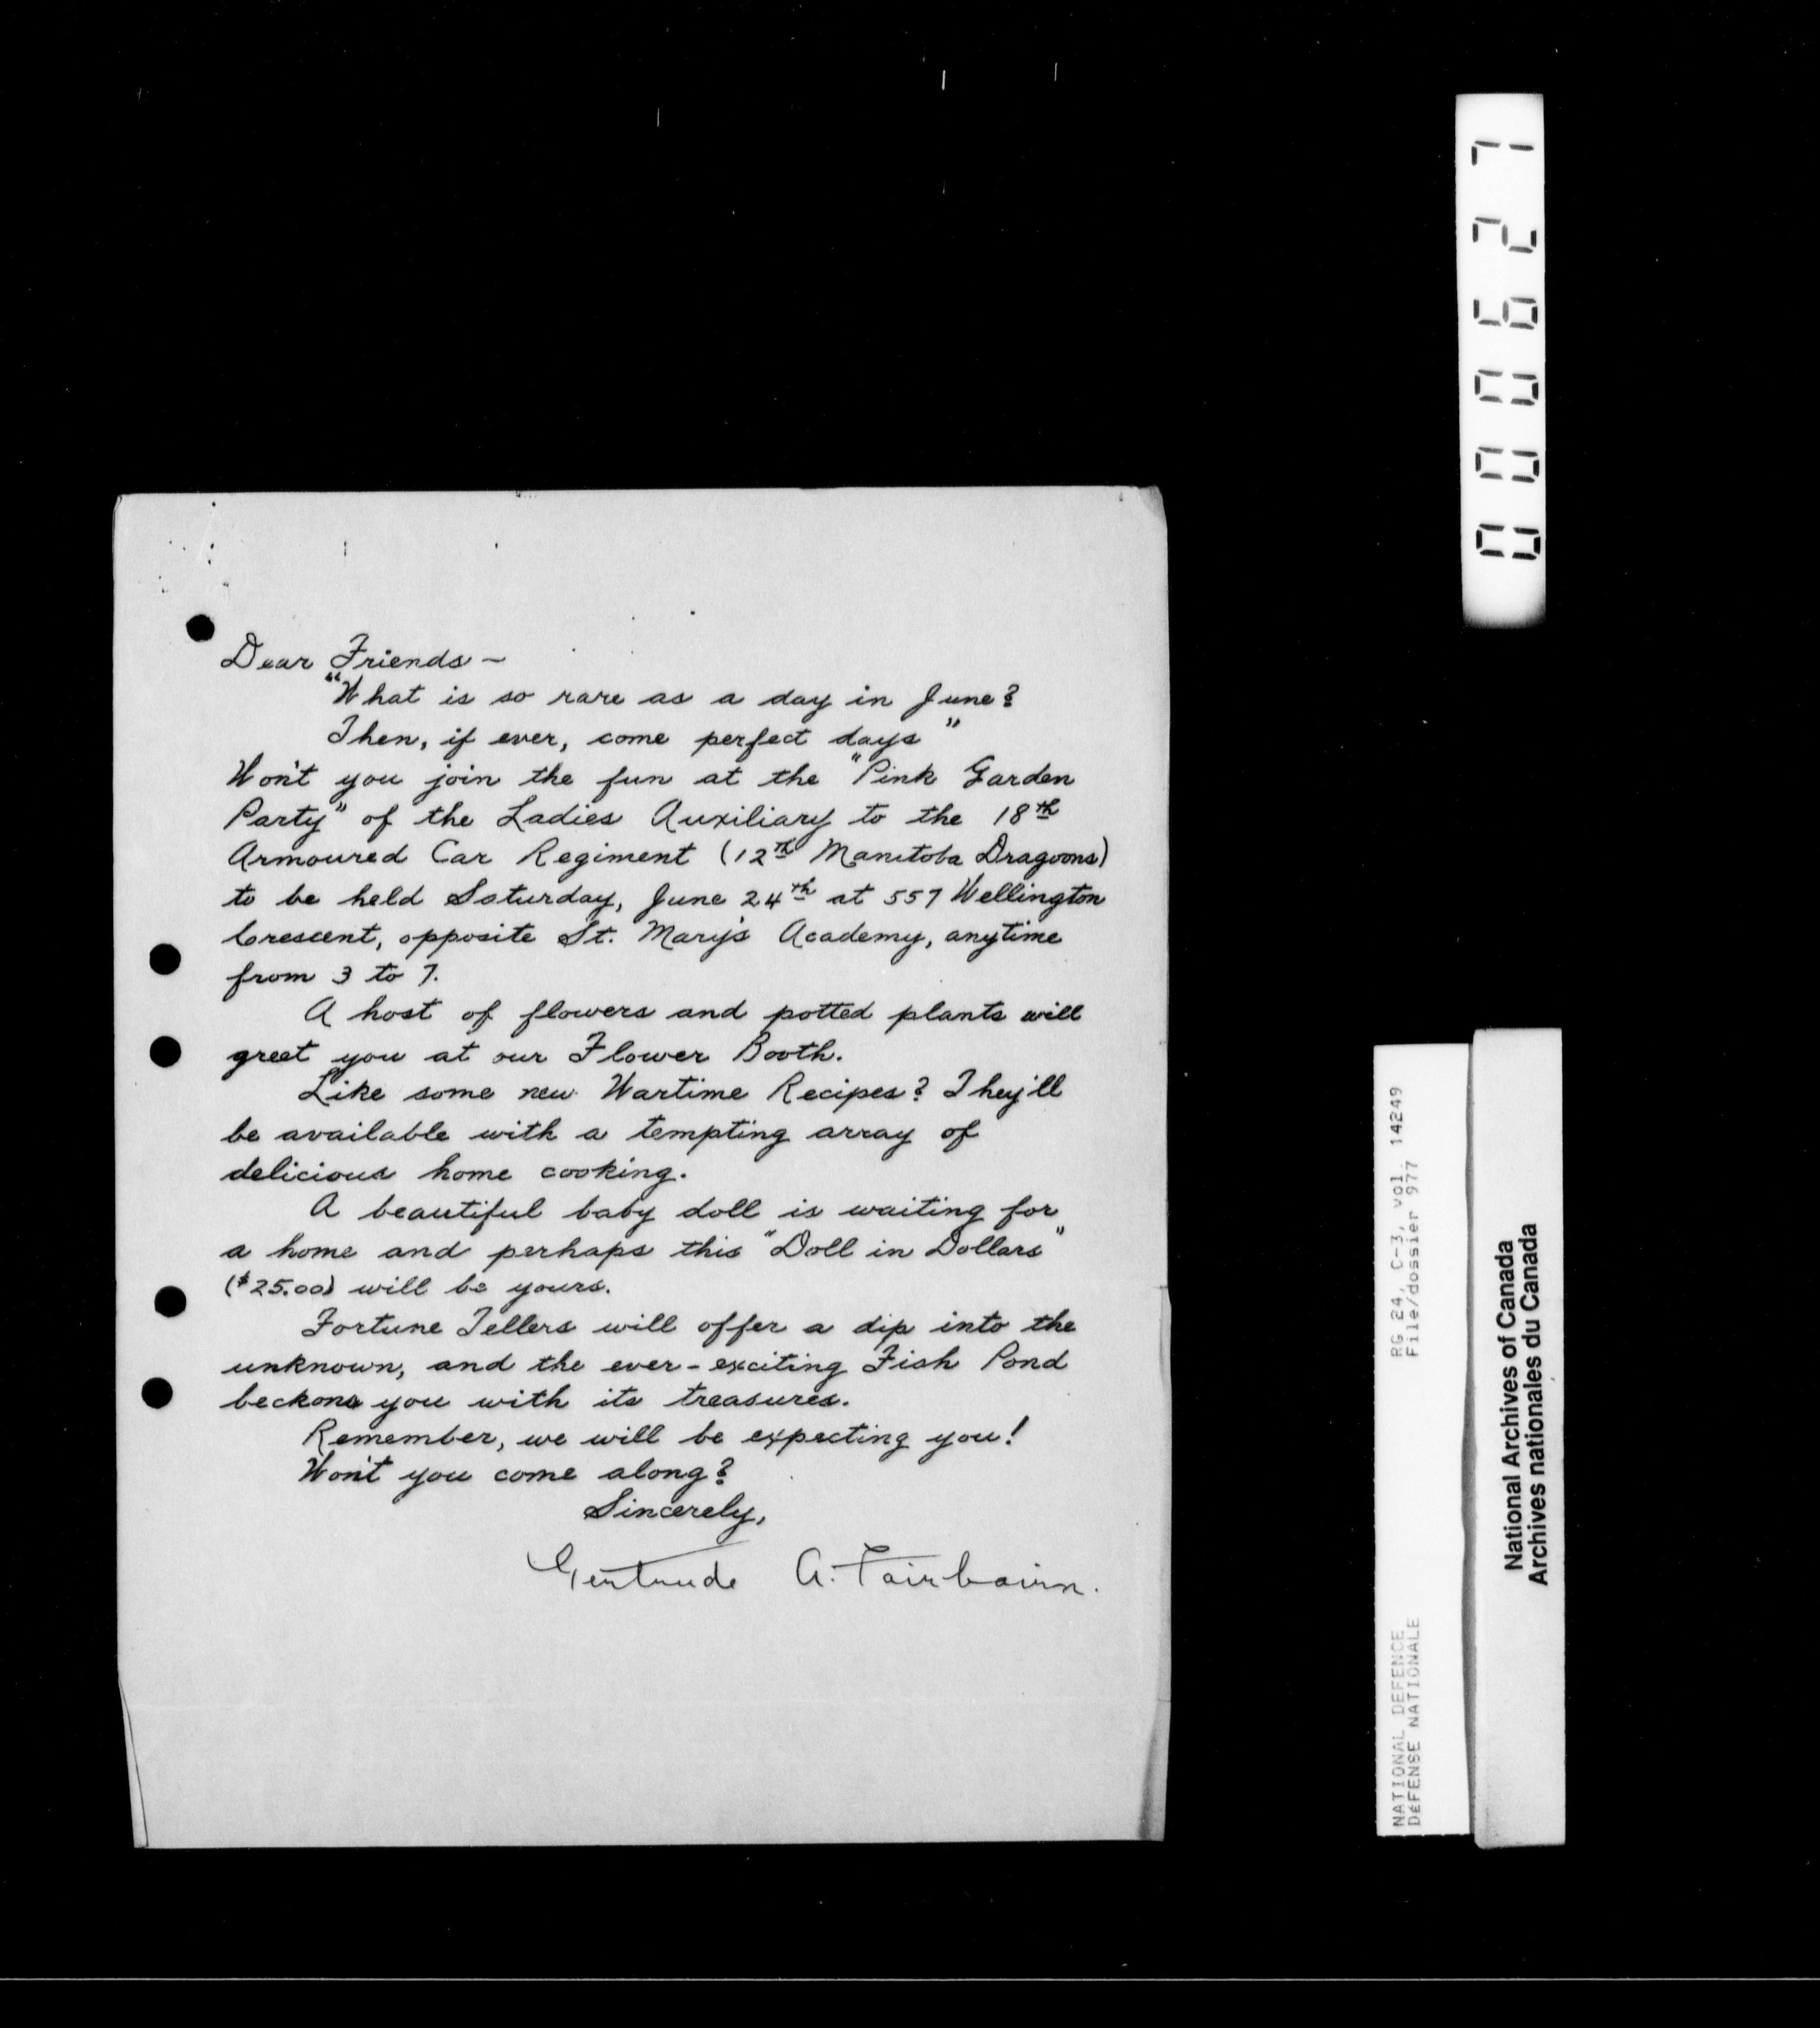 Dear Friends –
"What is so rare as a day in June?
Then, if ever, come perfect days"
Won't you join the fun at the "Pink Garden
Party" of the Ladies Auxiliary to the 18th
Armoured Car Regiment (12th Manitoba Dragoons)
to be held Saturday, June 24th at 557 Wellington
Crescent, opposite St. Mary's Academy, anytime
from 3 to 7.
A host of flowers and potted plants will
greet you at our Flower Booth.
Like some new Wartime Recipes? They'll
be available with a tempting array of
delicious home cooking.
A beautiful baby doll is waiting for
a home and perhaps this "Doll in Dollars"
($25.00) will be yours.
Fortune Tellers will offer a dip into the
unknown, and the ever-exciting Fish Pond
beckons you with its treasures.
Remember, we will be expecting you!
Won't you come along?
Sincerely,
Gertrude A. Fairbairn.
000627
NATIONAL DEFENCE RG 24, C-3, vol. 14249
DÉFENSE NATIONALE File/dossier 977
National Archives of Canada
Archives nationales du Canada